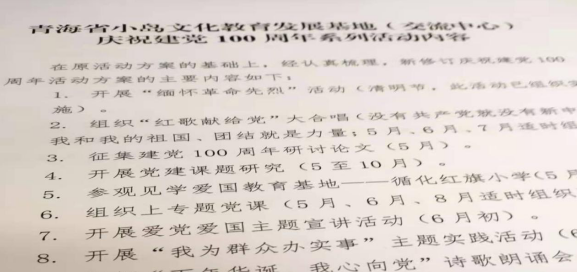 青海省小岛文化教育发展基地（交流中心）
庆祝建党 100 周年系列活动内容
在原活动方案的基础上，经认真梳理，新修订庆祝建党 100
周年活动方案的主要内容如下：
1. 开展“缅怀革命先烈”活动（清明节，此活动已组织实
施）。
2. 组织“红歌献给党”大合唱（没有共产党就没有新中
我和我的祖国、团结就是力量；5 月、6 月、7 月适时组
3. 征集建党 100 周年研讨论文（5 月）。
4. 开展党建课题研究（5 至 10 月）。
5. 参观见学爱国教育基地——循化红旗小学（5 月
6. 组织上专题党课（5 月、6 月、8 月适时组织
7. 开展爱党爱国主题宣讲活动（6 月初）。
8. 开展“我为群众办实事”主题实践活动（6
百年华诞，我心向党”诗歌朗诵会